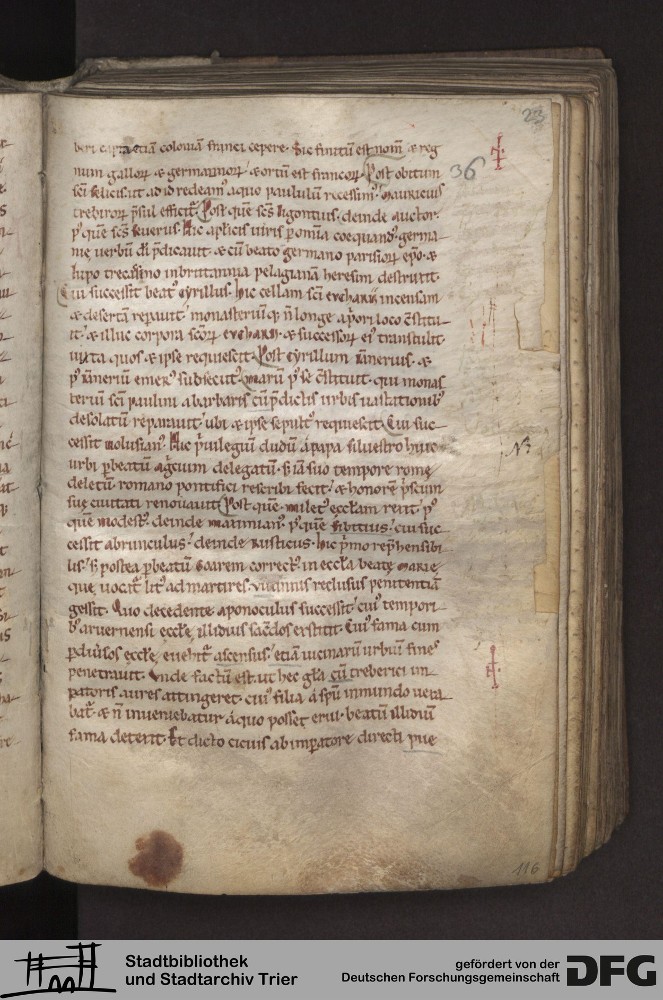 23
beri capta etiā coloniā franci cepere. Sic finitū est nom̄ & reg
num gallorꝝ & germannorꝝ & ortū est francorꝝ. Post obitum
36
sc̄i felicis. ut ad id redeam' a quo paululū recessim'. Mauricius
trebirorꝝ p̄sul efficit̄. Post quē sc̄s ligontius. deinde auctor.
p' quē sc̄s seuerus. Hic aplicis uiris ꝑ omnia coequand'. germa
nię uerbū dī p̄dicauit. & cū beato germano parisiorꝝ ep̄o. &
lupo trecassino in brittannia pelagianā heresim destruxit.
Cui successit beat' Cyrillus. hic cellam sc̄i eucharii incensam
& desertā reparauit. monasteriūq; n̄ longe a p̄ori loco c̄stitu
it. & illuc corpora sc̄orꝝ eucharii. & successorꝝ ei' transtulit.
iuxta quos & ipse requiescit. Post Cyrillum iānerius. &
p' iāneriū emer' subsecut'. marū p' se c̄stituit. qui monas
teriū sc̄i paulini a barbaris cū p̄dictis urbis uastationib'
desolatū reparauit. ubi & ipse sepult' requiescit. Cui suc
cessit uolusian'. Hic p̄uilegiū dudū a papa siluestro huic
urbi ꝑ beatū agcium delegatū. s; iā suo tempore romę
deletū. romano pontifici rescribi fecit. & honorē p̄scum
suę ciuitati renouauit. Post quē milet' eccłam rexit. p'
quē modest'. deinde maximian'. p' quē fibitius. cui suc
cessit abrunculus. deinde rusticus. hic p̄mo rep̄hensibi
lis. s; postea ꝑ beatū Goarem correct'. in eccła beatę marię
que uocat̄ lit' ad martires. uicinus reclusus penitentiā
gessit. Quo decedente aponoculus successit. cui' tempori
b' aruernensi eccłę illidius sacdos extitit. Cui' fama cum
ꝑ diuersos eccłę euehit̄ ascensus. etiā uicinarū urbiū fines
penetrauit. Unde factū est. ut hec gła cū treberici im
ꝑatoris aures attingeret. cui' filia a sp̄u inmundo uexa
bat̄. & n̄ inueniebatur a quo posset erui. beatū illidiū
fama detexit. Et dicto cicius ab imperatore directi pue
116
Stadtbibliothek
und Stadtarchiv Trier
gefördert von der
Deutschen Forschungsgemeinschaft
DFG